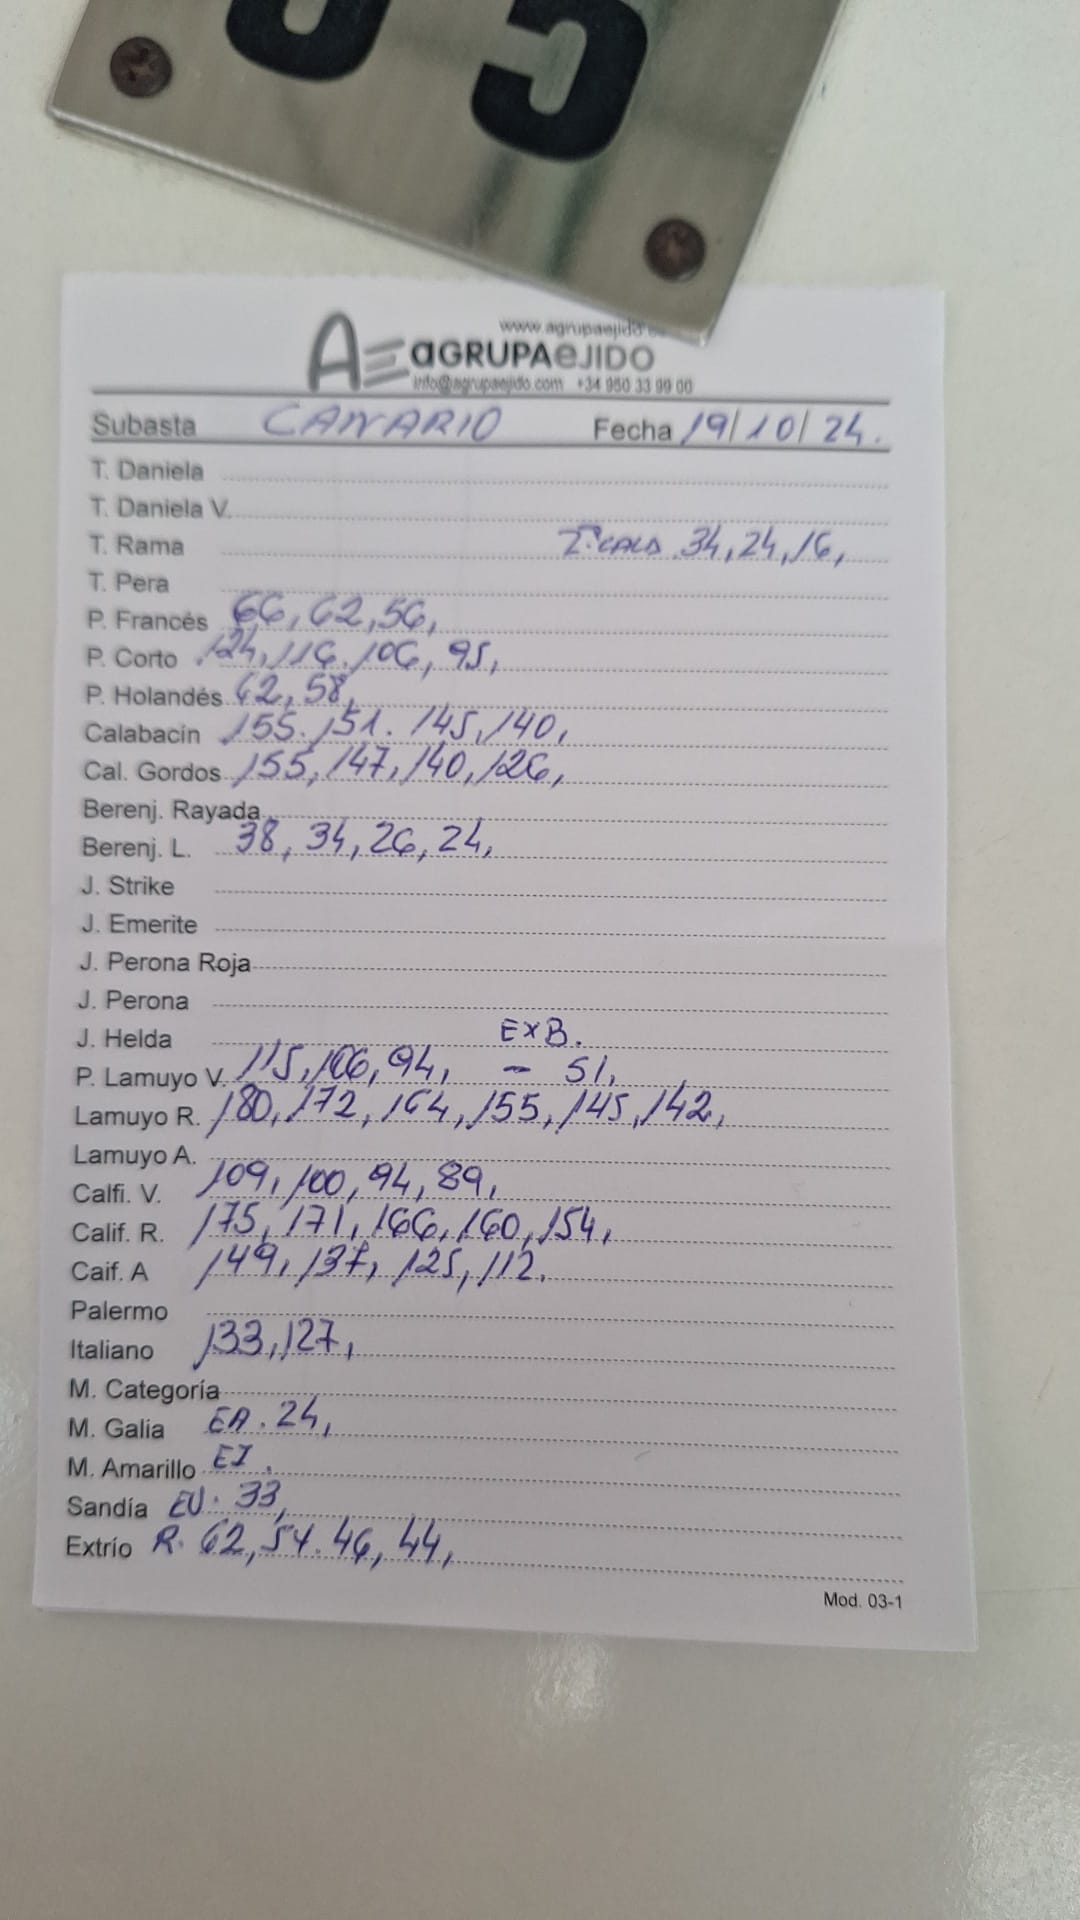 www.agrupaejido
AE aGRUPAeJIDO
info@agrupaejido.com +34 950 33 99 00
Subasta CANARIO Fecha 19/10/24.
T. Daniela
T. Daniela V.
T. Rama 34, 24, 16,
T. Pera
P. Francés 66, 62, 56,
P. Corto 124, 116. 106, 95,
P. Holandés 62, 58,
Calabacín 155. 151. 145, 140,
Cal. Gordos 155, 147, 140, 126,
Berenj. Rayada
Berenj. L. 38, 34, 26, 24,
J. Strike
J. Emerite
J. Perona Roja
J. Perona
J. Helda EXB.
P. Lamuyo V. 115, 106, 94, - 51,
Lamuyo R. 180, 172, 164, 155, 145, 142,
Lamuyo A.
Calfi. V. 109, 100, 94, 89,
Calif. R. 175, 171, 166, 160, 154,
Caif. A 149, 137, 125, 112.
Palermo
Italiano 133, 127,
M. Categoría
M. Galia EA. 24,
M. Amarillo EI.
Sandía EV. 33,
Extrío R. 62, 54. 46, 44,
Mod. 03-1